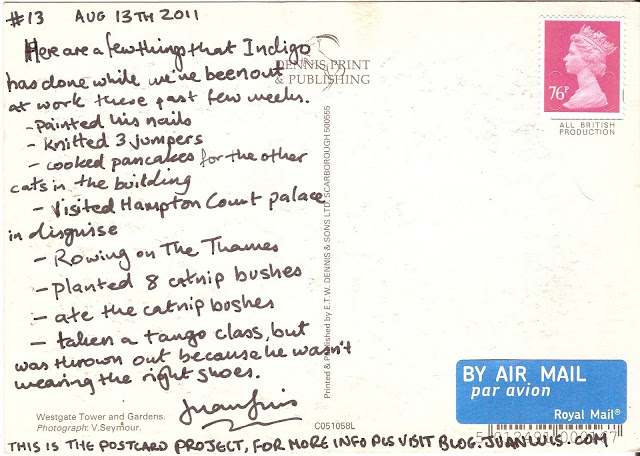 #13 AUG 13TH 2011
Here are a few things that Indigo
has done while we've been out
at work these past few weeks.
- Painted his nails
- Knitted 3 jumpers
- cooked pancakes for the other
cats in the building
- Visited Hampton Court palace
in disguise
- Rowing on The Thames
- planted 8 catnip bushes
- ate the catnip bushes
- taken a tango class, but
was thrown out because he wasn't
wearing the right shoes.
Juan Luis
DENNIS PRINT
& PUBLISHING
Printed & Published by E.T.W. DENNIS & SONS LTD. SCARBOROUGH 500555
76P
ALL BRITISH
PRODUCTION
BY AIR MAIL
par avion
Royal Mail®
Westgate Tower and Gardens.
Photograph: V.Seymour.
C051058L
THIS IS THE POSTCARD PROJECT, FOR MORE INFO PLS VISIT BLOG.JUANLUIS.COM